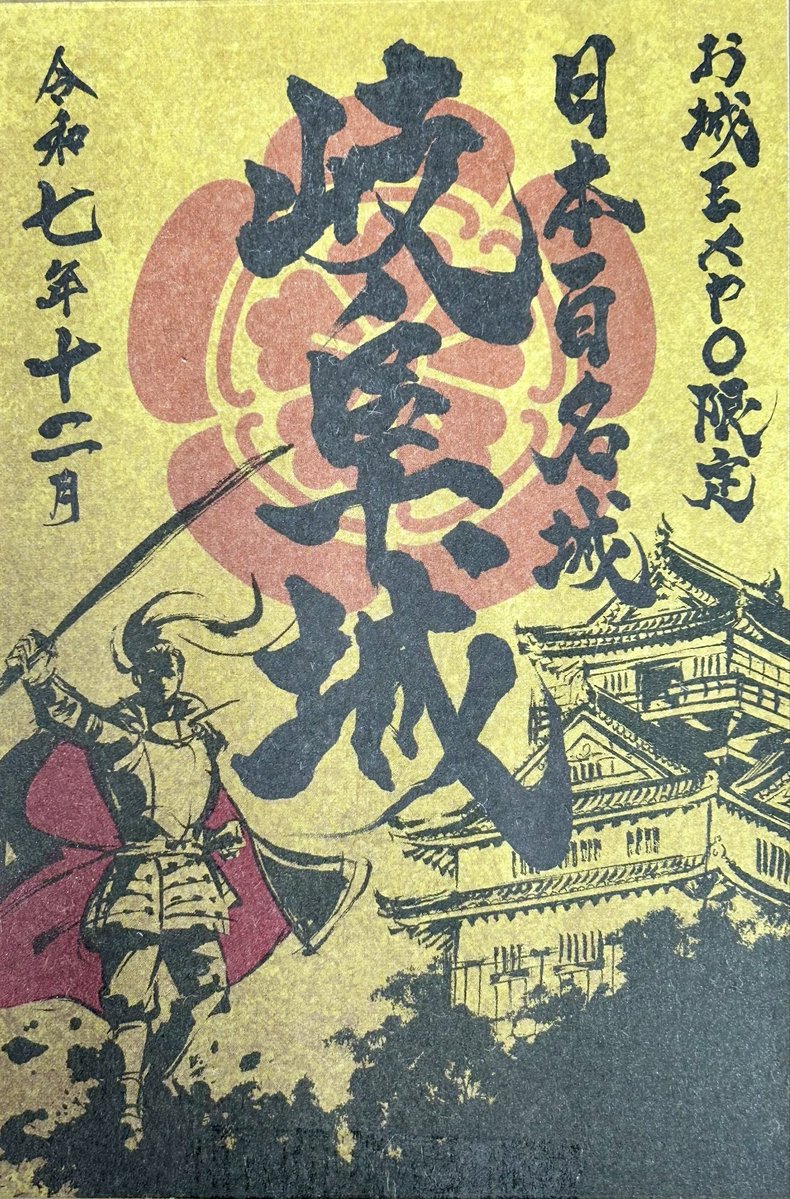 お城王メヤ〇限定
日本百名城
岐阜城
令和七年十二月